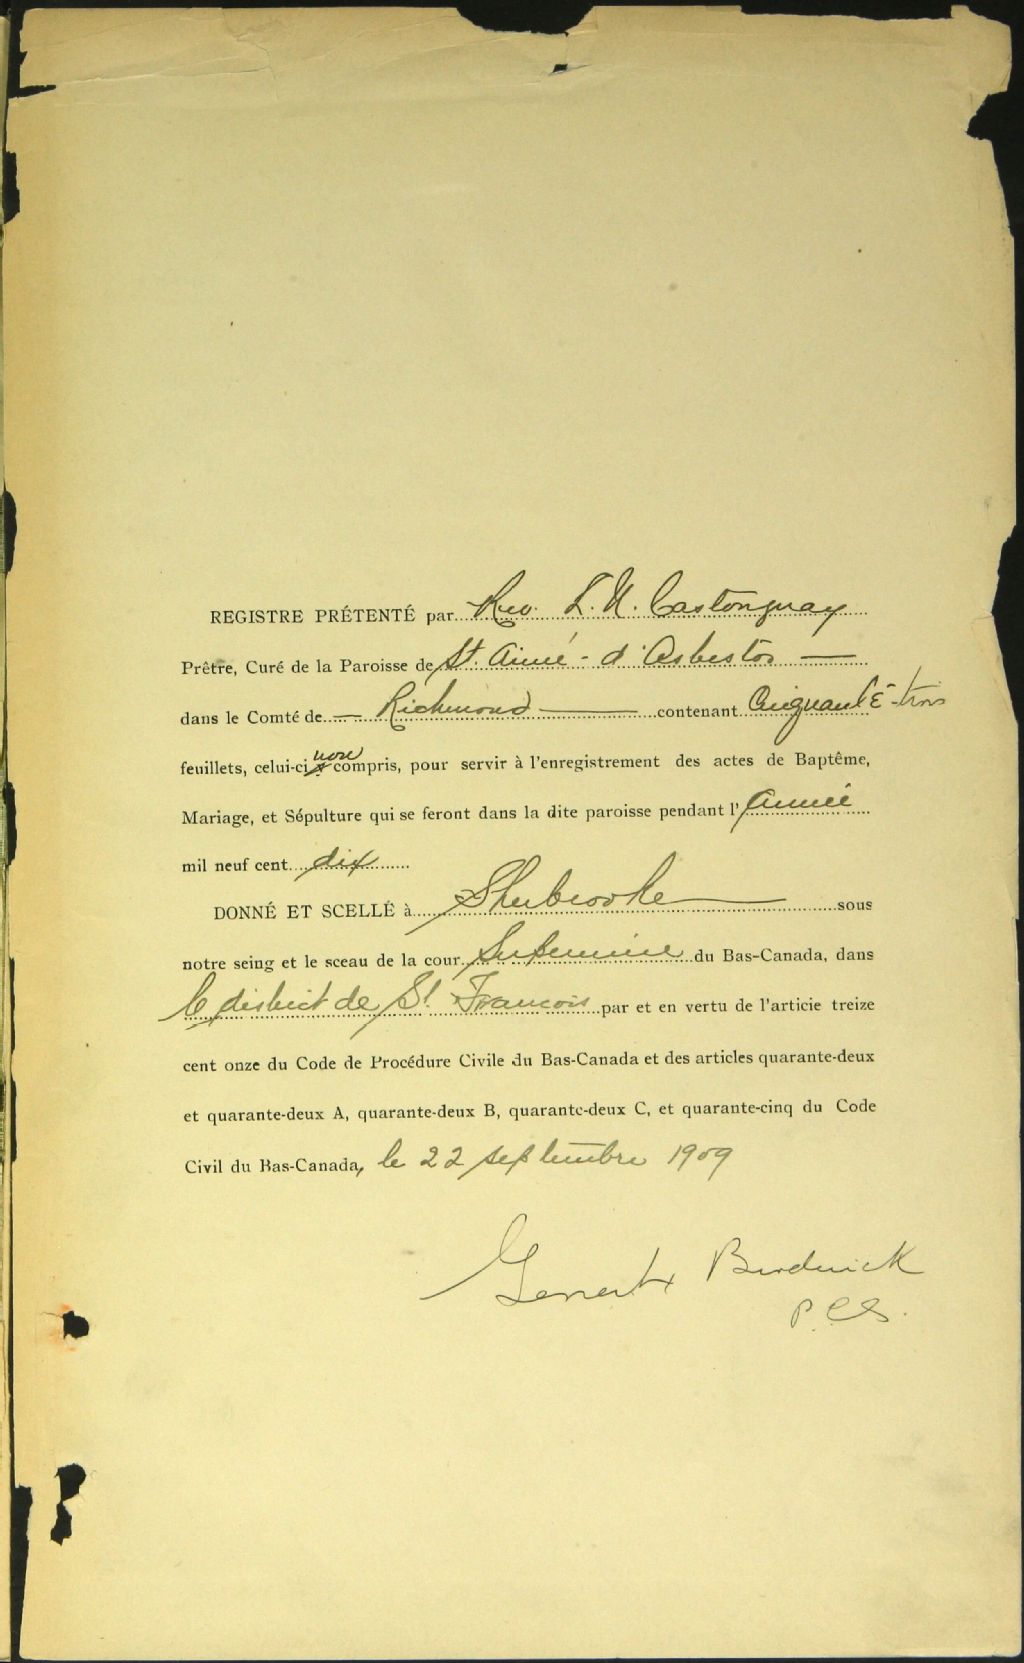 REGISTRE PRÉTENTÉ par Rev. L. N. Castonguay
Prêtre, Curé de la Paroisse de St. Aimé - d'Asbestos —
dans le Comté de — Richmond — contenant Cinquante-trois
feuillets, celui-ci non compris, pour servir à l'enregistrement des actes de Baptême,
Mariage, et Sépulture qui se feront dans la dite paroisse pendant l'Année
mil neuf cent dix
DONNÉ ET SCELLÉ à Sherbrooke — sous
notre seing et le sceau de la cour Supérieure du Bas-Canada, dans
le district de St. Francois par et en vertu de l'articie treize
cent onze du Code de Procédure Civile du Bas-Canada et des articles quarante-deux
et quarante-deux A, quarante-deux B, quarante-deux C, et quarante-cinq du Code
Civil du Bas-Canada, le 22 septembre 1909
P.C.S.